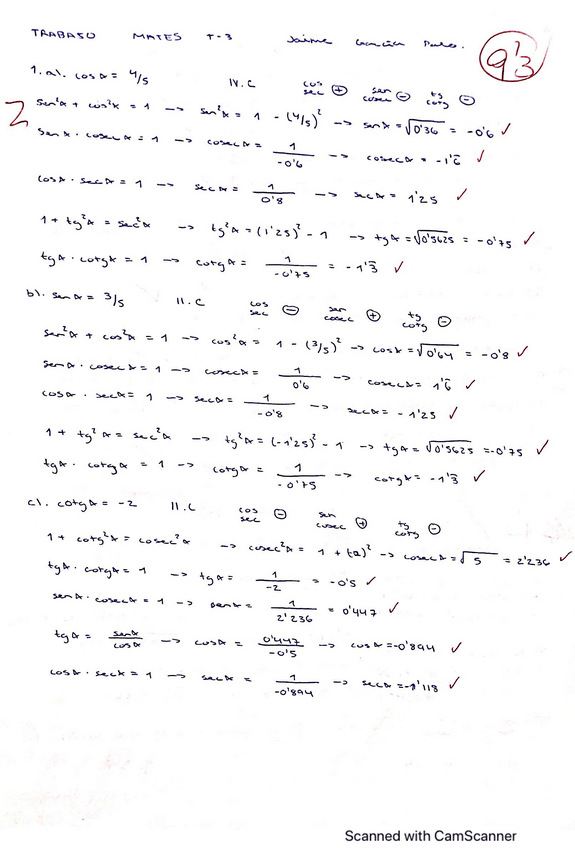 TRABAJO MATES T-3 Jaime García
9'3
1. a). cos α = 4/5 IV.C cos sec ⊕ sen cosec ⊖ tg cotg ⊖
2
sen²α + cos²α = 1 --> sen²α = 1 - (4/5)² --> sen α = √0'36 = -0'6 ✓
sen α · cosec α = 1 --> cosec α = 1/-0'6 --> cosec α = -1'6̄ ✓
cos α · sec α = 1 --> sec α = 1/0'8 --> sec α = 1'25 ✓
1 + tg²α = sec²α --> tg²α = (1'25)² - 1 --> tg α = √0'5625 = -0'75 ✓
tg α · cotg α = 1 --> cotg α = 1/-0'75 = -1'3̄ ✓
b). sen α = 3/5 II.C cos sec ⊖ sen cosec ⊕ tg cotg ⊖
sen²α + cos²α = 1 --> cos²α = 1 - (3/5)² --> cos α = √0'64 = -0'8 ✓
sen α · cosec α = 1 --> cosec α = 1/0'6 --> cosec α = 1'6̄ ✓
cos α · sec α = 1 --> sec α = 1/-0'8 --> sec α = -1'25 ✓
1 + tg²α = sec²α --> tg²α = (-1'25)² - 1 --> tg α = √0'5625 = -0'75 ✓
tg α · cotg α = 1 --> cotg α = 1/-0'75 --> cotg α = -1'3̄ ✓
c). cotg α = -2 II.C cos sec ⊖ sen cosec ⊕ tg cotg ⊖
1 + cotg²α = cosec²α --> cosec²α = 1 + (2)² --> cosec α = √5 = 2'236 ✓
tg α · cotg α = 1 --> tg α = 1/-2 = -0'5 ✓
sen α · cosec α = 1 --> sen α = 1/2'236 = 0'447 ✓
tg α = sen α/cos α --> cos α = 0'447/-0'5 --> cos α = -0'894 ✓
cos α · sec α = 1 --> sec α = 1/-0'894 --> sec α = -1'118 ✓
Scanned with CamScanner